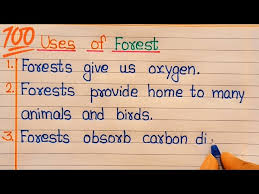 100 Uses of Forest
1. Forests give us oxygen.
2. Forests provide home to many
animals and birds.
3. Forests absorb carbon di